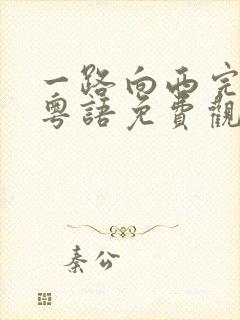 一路向西完
粵語免費觀
秦公